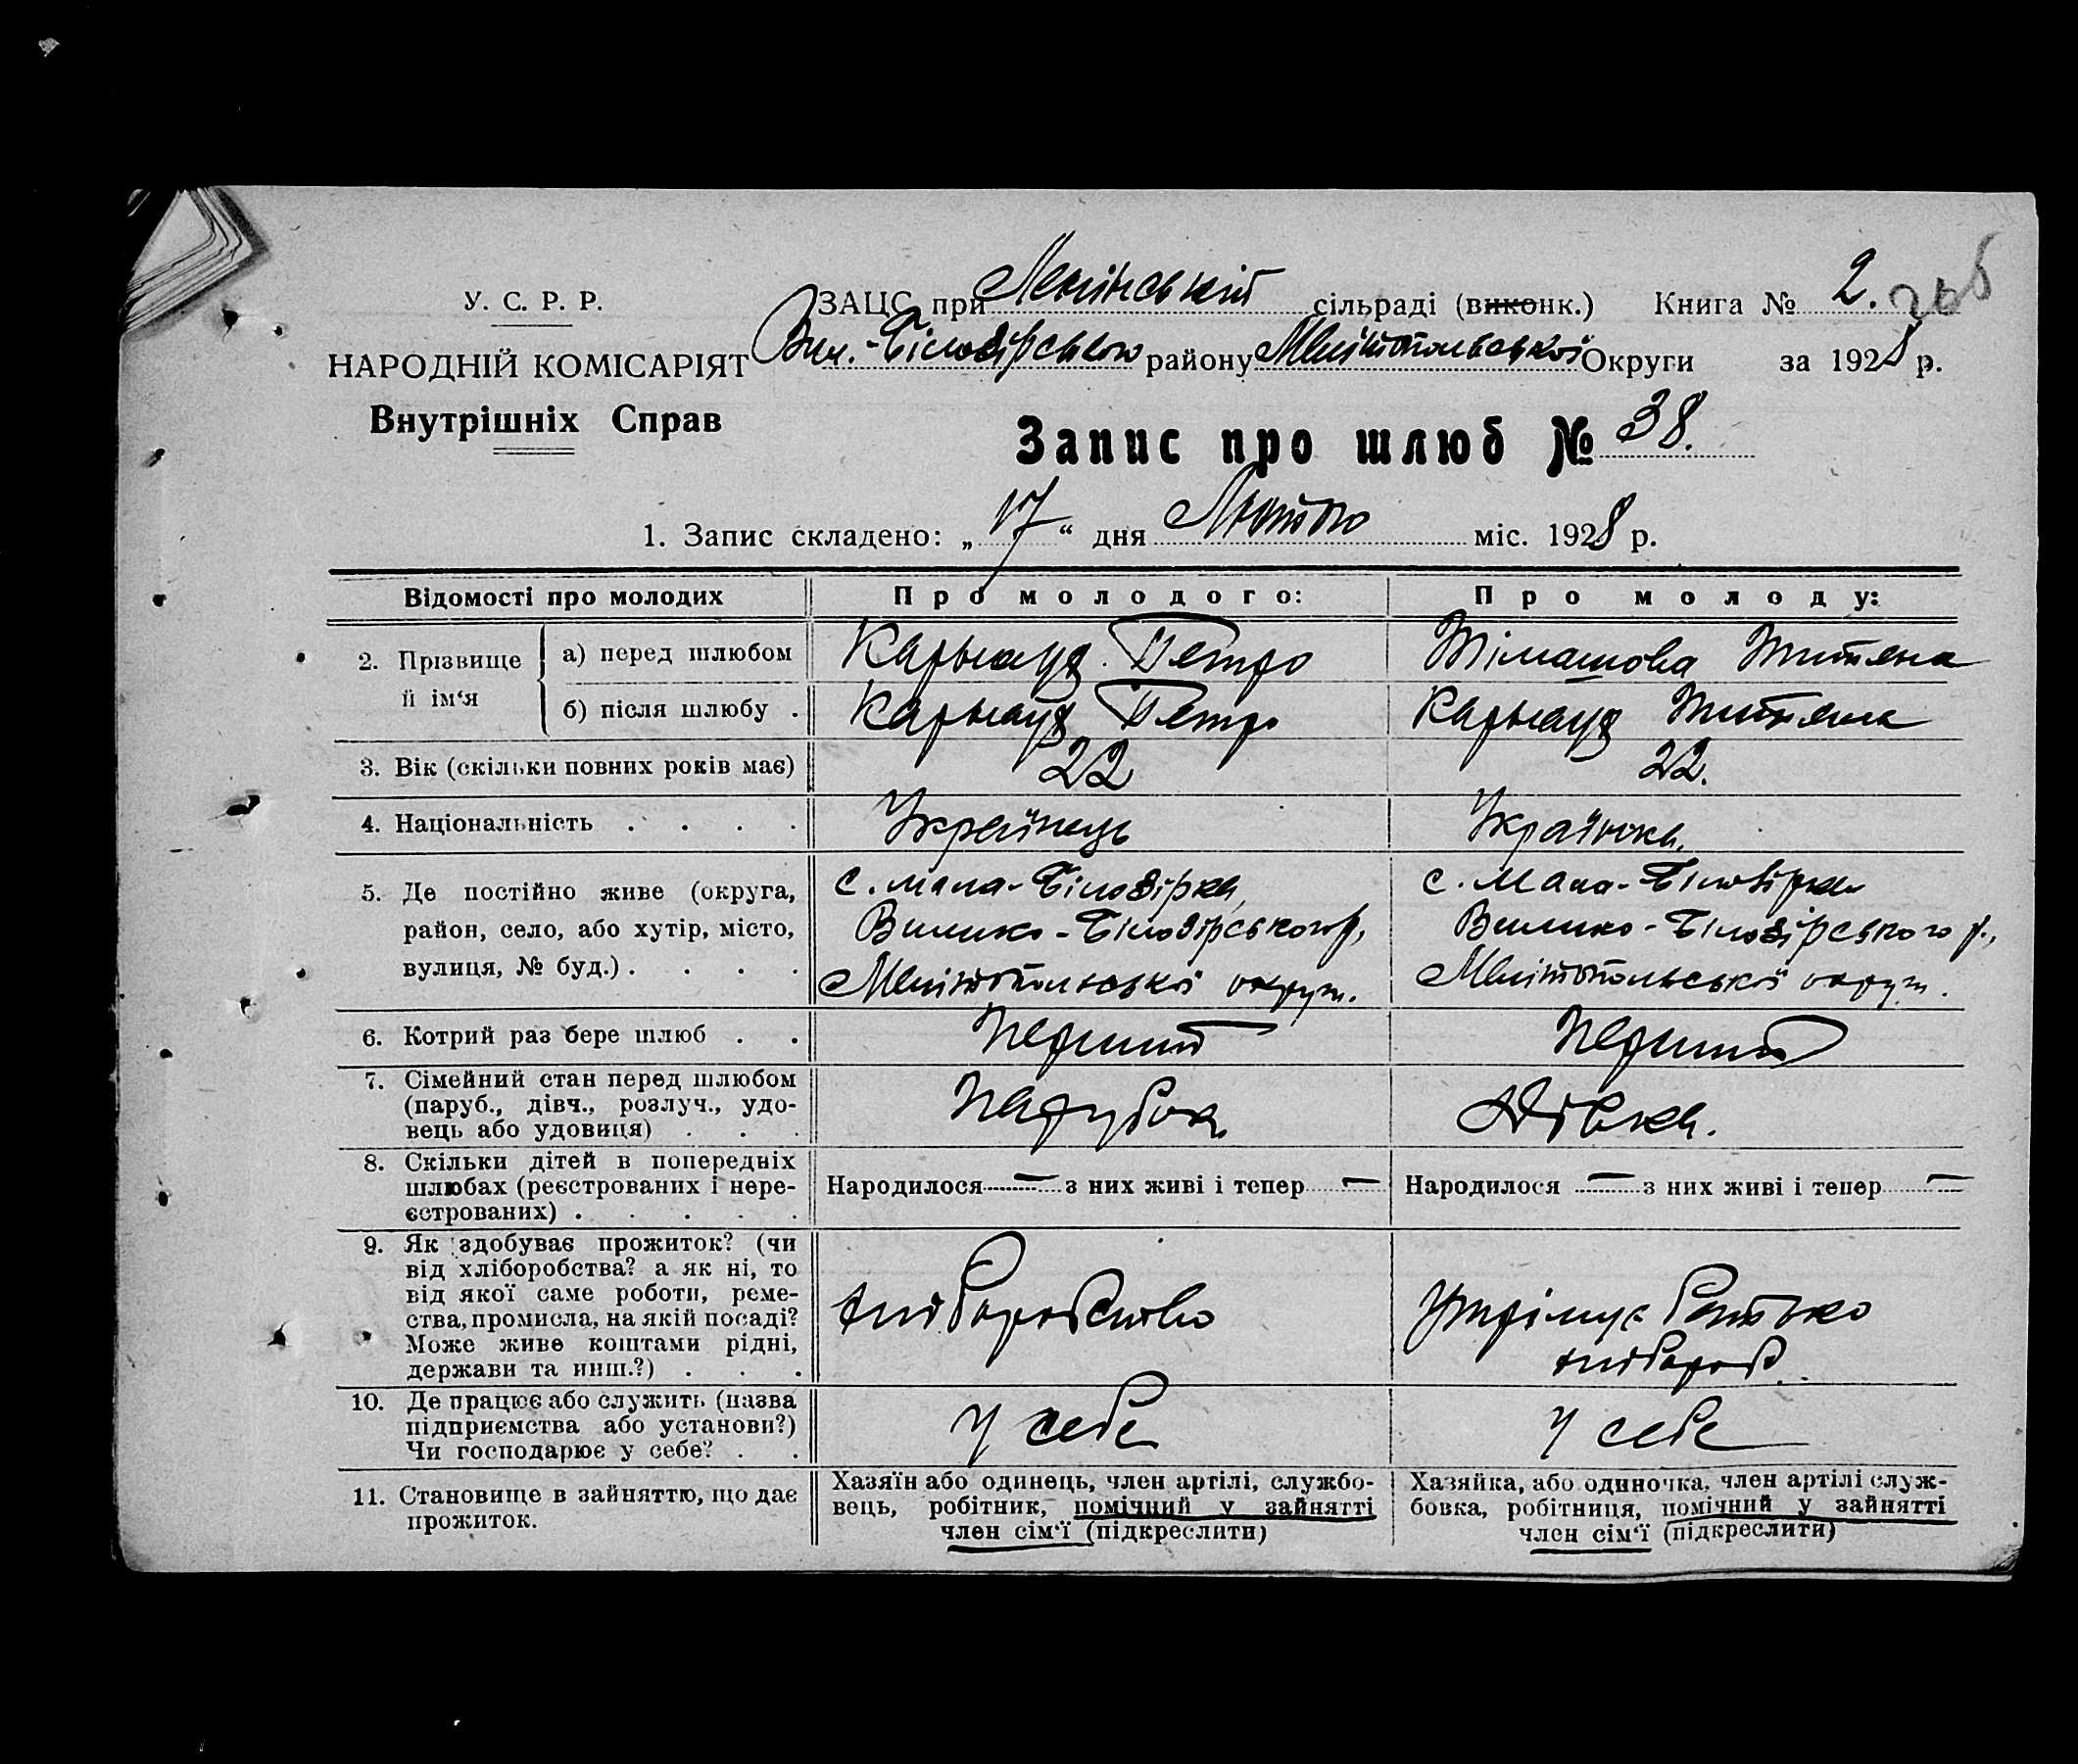 У. С. Р. Р.
НАРОДНІЙ КОМІСАРІЯТ
Внутрішніх Справ
ЗАЦС при Ленінській сільраді (виконк.) Книга № 2.
Вел.-Білозірського району Мелітопольської Округи за 1928 р.
Запис про шлюб № 38.
1. Запис складено: „17“ дня Лютого міс. 1928 р.
Відомості про молодих
Про молодого:
Про молоду:
2. Прізвище й ім‘я
а) перед шлюбом
Петро
Тімашова Титяна
б) після шлюбу .
Петро
Титяна
3. Вік (скільки повних років має)
22
22.
4. Національність . . . .
Українець
Українка.
5. Де постійно живе (округа,
район, село, або хутір, місто,
вулиця, № буд.) . . . .
с. Мала-Білозірка,
Велико-Білозірського р,
Мелітопольської округи.
с. Мала-Білозірка
Велико-Білозірського р.,
Мелітопольської округи.
6. Котрий раз бере шлюб . .
Перший
Перший
7. Сімейний стан перед шлюбом
(паруб., дівч., розлуч., удо-
вець або удовиця) . . .
Парубок
Дівка.
8. Скільки дітей в попередніх
шлюбах (реєстрованих і нере-
єстрованих) . . . . .
Народилося — з них живі і тепер —
Народилося — з них живі і тепер —
9. Як здобуває прожиток? (чи
від хліборобства? а як ні, то
від якої саме роботи, реме-
ства, промисла, на якій посаді?
Може живе коштами рідні,
держави та инш.?) . . .
хліборобство
Утрімує батько
хлібороб.
10. Де працює або служить (назва
підприємства або установи?)
Чи господарює у себе? . .
У себе
У себе
11. Становище в зайняттю, що дає
прожиток.
Хазяїн або одинець, член артілі, службо-
вець, робітник, помічний у зайнятті
член сім‘ї (підкреслити)
Хазяйка, або одиночка, член артілі служ-
бовка, робітниця, помічний у зайнятті
член сім‘ї (підкреслити)